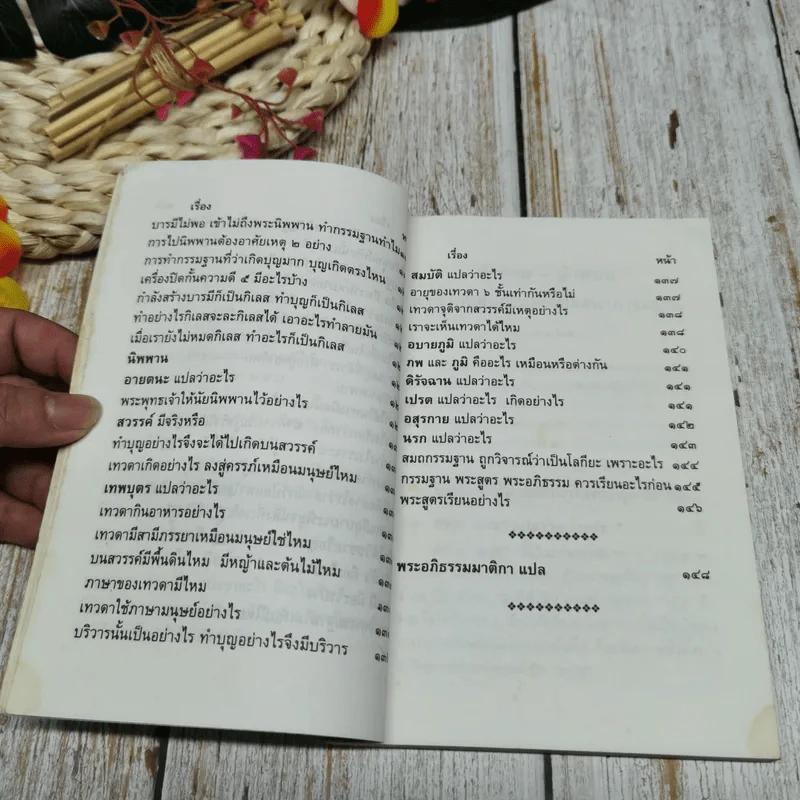 เรื่อง
บารมีไม่พอ เข้าไม่ถึงพระนิพพาน ทำกรรมฐานทำไม
การไปนิพพานต้องอาศัยเหตุ ๒ อย่าง
การทำกรรมฐานที่ว่าเกิดบุญมาก บุญเกิดตรงไหน
เครื่องปิดกั้นความดี ๕ มีอะไรบ้าง
กำลังสร้างบารมีก็เป็นกิเลส ทำบุญก็เป็นกิเลส
ทำอย่างไรกิเลสจะละกิเลสได้ เอาอะไรทำลายมัน
เมื่อเรายังไม่หมดกิเลส ทำอะไรก็เป็นกิเลส
นิพพาน
อายตนะ แปลว่าอะไร
พระพุทธเจ้าให้นัยนิพพานไว้อย่างไร
สวรรค์ มีจริงหรือ
ทำบุญอย่างไรจึงจะได้ไปเกิดบนสวรรค์
เทวดาเกิดอย่างไร ลงสู่ครรภ์เหมือนมนุษย์ไหม
เทพบุตร แปลว่าอะไร
เทวดากินอาหารอย่างไร
เทวดามีสามีภรรยาเหมือนมนุษย์ใช่ไหม
บนสวรรค์มีพื้นดินไหม มีหญ้าและต้นไม้ไหม
ภาษาของเทวดามีไหม
เทวดาใช้ภาษามนุษย์อย่างไร
บริวารนั้นเป็นอย่างไร ทำบุญอย่างไรจึงมีบริวาร
เรื่อง หน้า
สมบัติ แปลว่าอะไร ๑๓๗
อายุของเทวดา ๖ ชั้นเท่ากันหรือไม่ ๑๓๗
เทวดาจุติจากสวรรค์มีเหตุอย่างไร ๑๓๘
เราจะเห็นเทวดาได้ไหม ๑๓๘
อบายภูมิ แปลว่าอะไร ๑๔๐
ภพ และ ภูมิ คืออะไร เหมือนหรือต่างกัน ๑๔๑
ดิรัจฉาน แปลว่าอะไร ๑๔๑
เปรต แปลว่าอะไร เกิดอย่างไร ๑๔๑
อสุรกาย แปลว่าอะไร ๑๔๒
นรก แปลว่าอะไร ๑๔๓
สมถกรรมฐาน ถูกวิจารณ์ว่าเป็นโลกียะ เพราะอะไร ๑๔๔
กรรมฐาน พระสูตร พระอภิธรรม ควรเรียนอะไรก่อน ๑๔๕
พระสูตรเรียนอย่างไร ๑๔๖
พระอภิธรรมมาติกา แปล ๑๔๘